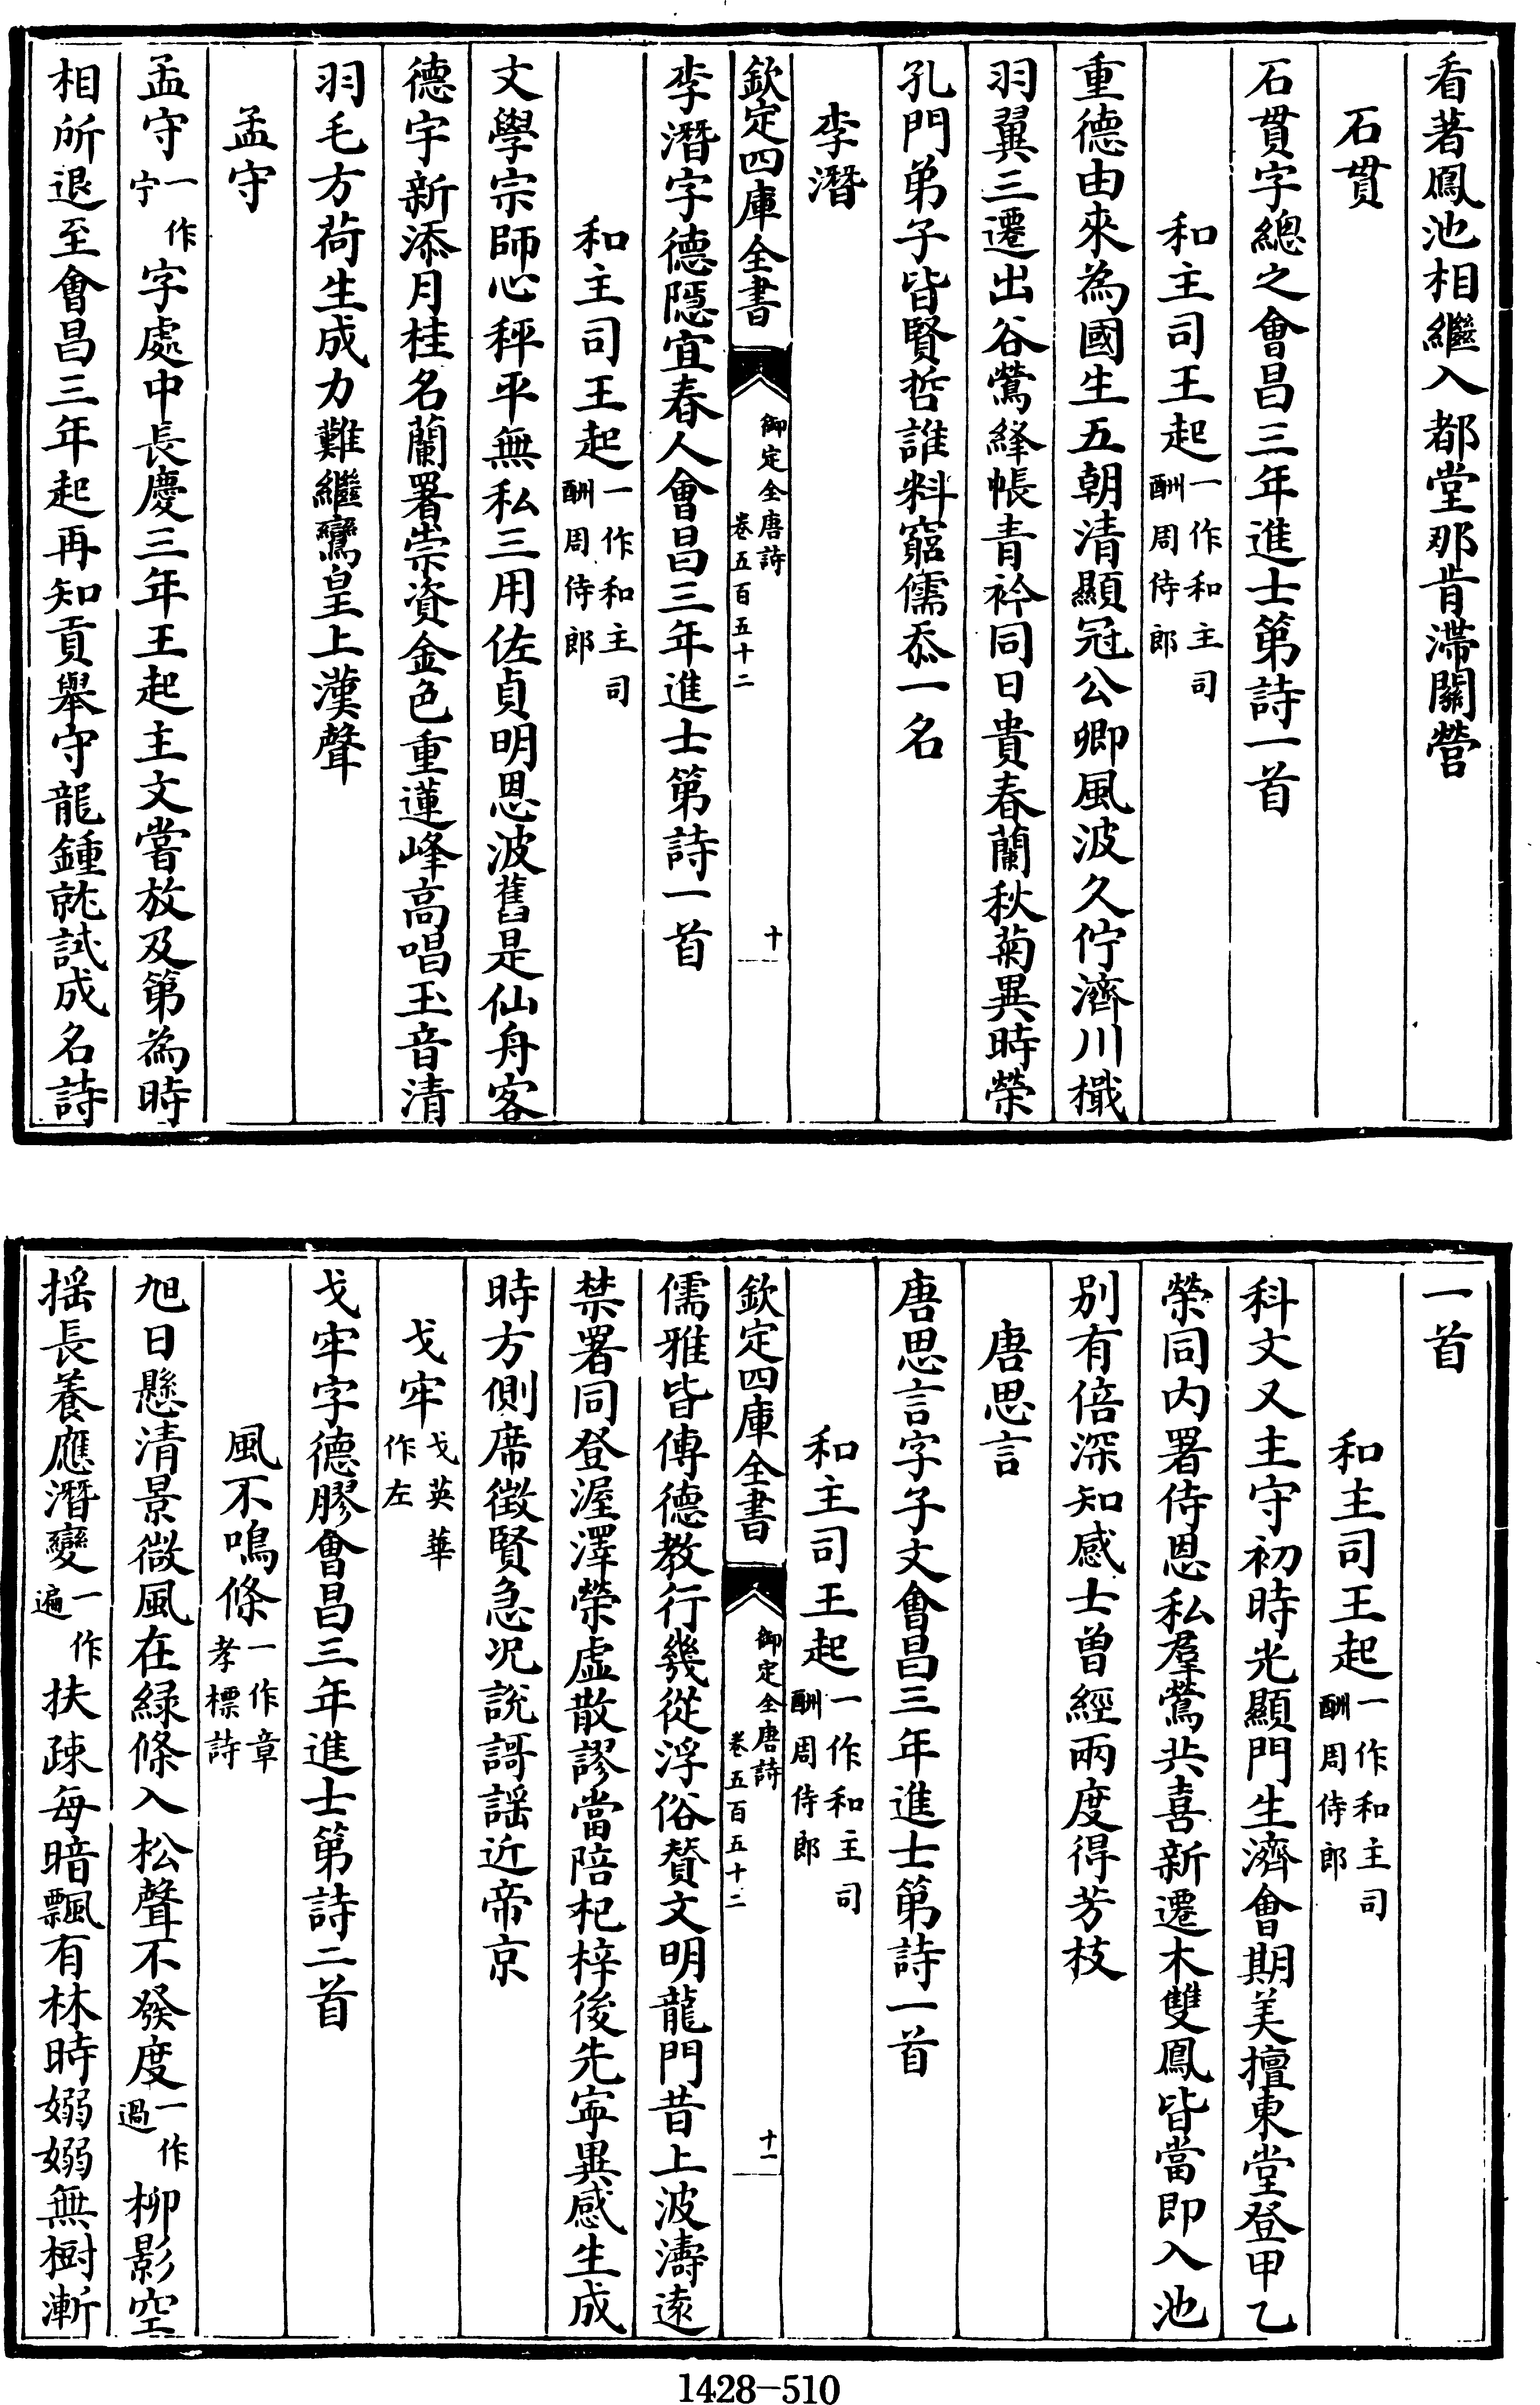 看著鳳池相繼入都堂那肯滯關營
石貫
石貫字總之會昌三年進士第詩一首
和主司王起一作和主司酬周侍郎
重德由來為國生五朝清顯冠公卿風波久佇濟川檝
羽翼三遷出谷鶯絳帳青衿同日貴春蘭秋菊異時榮
孔門弟子皆賢哲誰料窮儒忝一名
李潛
欽定四庫全書
御定全唐詩
卷五百五十二
十
李潛字德隱宜春人會昌三年進士第詩一首
和主司王起一作和主司酬周侍郎
文學宗師心秤平無私三用佐貞明恩波舊是仙舟客
德宇新添月桂名蘭署崇資金色重蓮峰高唱玉音清
羽毛方荷生成力難繼鸞皇上漢聲
孟守
孟守一作宁字處中長慶三年王起主文嘗放及第為時
相所退至會昌三年起再知貢舉守龍鍾就試成名詩
一首
和主司王起一作和主司酬周侍郎
科文又主守初時光顯門生濟會期美擅東堂登甲乙
榮同內署侍恩私羣鶯共喜新遷木雙鳳皆當即入池
別有倍深知感士曽經兩度得芳枝
唐思言
唐思言字子文會昌三年進士第詩一首
和主司王起一作和主司酬周侍郎
欽定四庫全書
御定全唐詩
卷五百五十二
十一
儒雅皆傳德教行幾從浮俗贊文明龍門昔上波濤遠
禁署同登渥澤榮虛散謬當陪杞梓後先寕異感生成
時方側席徵賢急況說謌謡近帝京
戈牢戈英華作左
戈牢字德膠會昌三年進士第詩二首
風不鳴條一作章孝標詩
旭日懸清景微風在緑條入松聲不發度一作過柳影空
揺長養應潛變一作遍扶疎每暗飄有林時嫋嫋無樹漸
1428-510